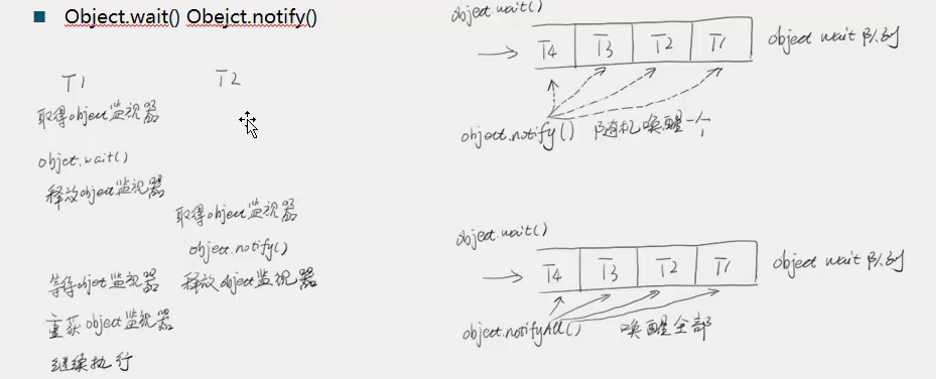 Object.wait() Obejct.notify()
T1
T2
取得object监视器
object.wait()
释放object监视器
取得object监视器
object.notify()
等待object监视器
释放object监视器
重获object监视器
继续执行
object.wait()
T4 T3 T2 T1
object wait 队列
object.notify() 随机唤醒一个
object.wait()
T4 T3 T2 T1
object wait 队列
object.notifyAll() 唤醒全部